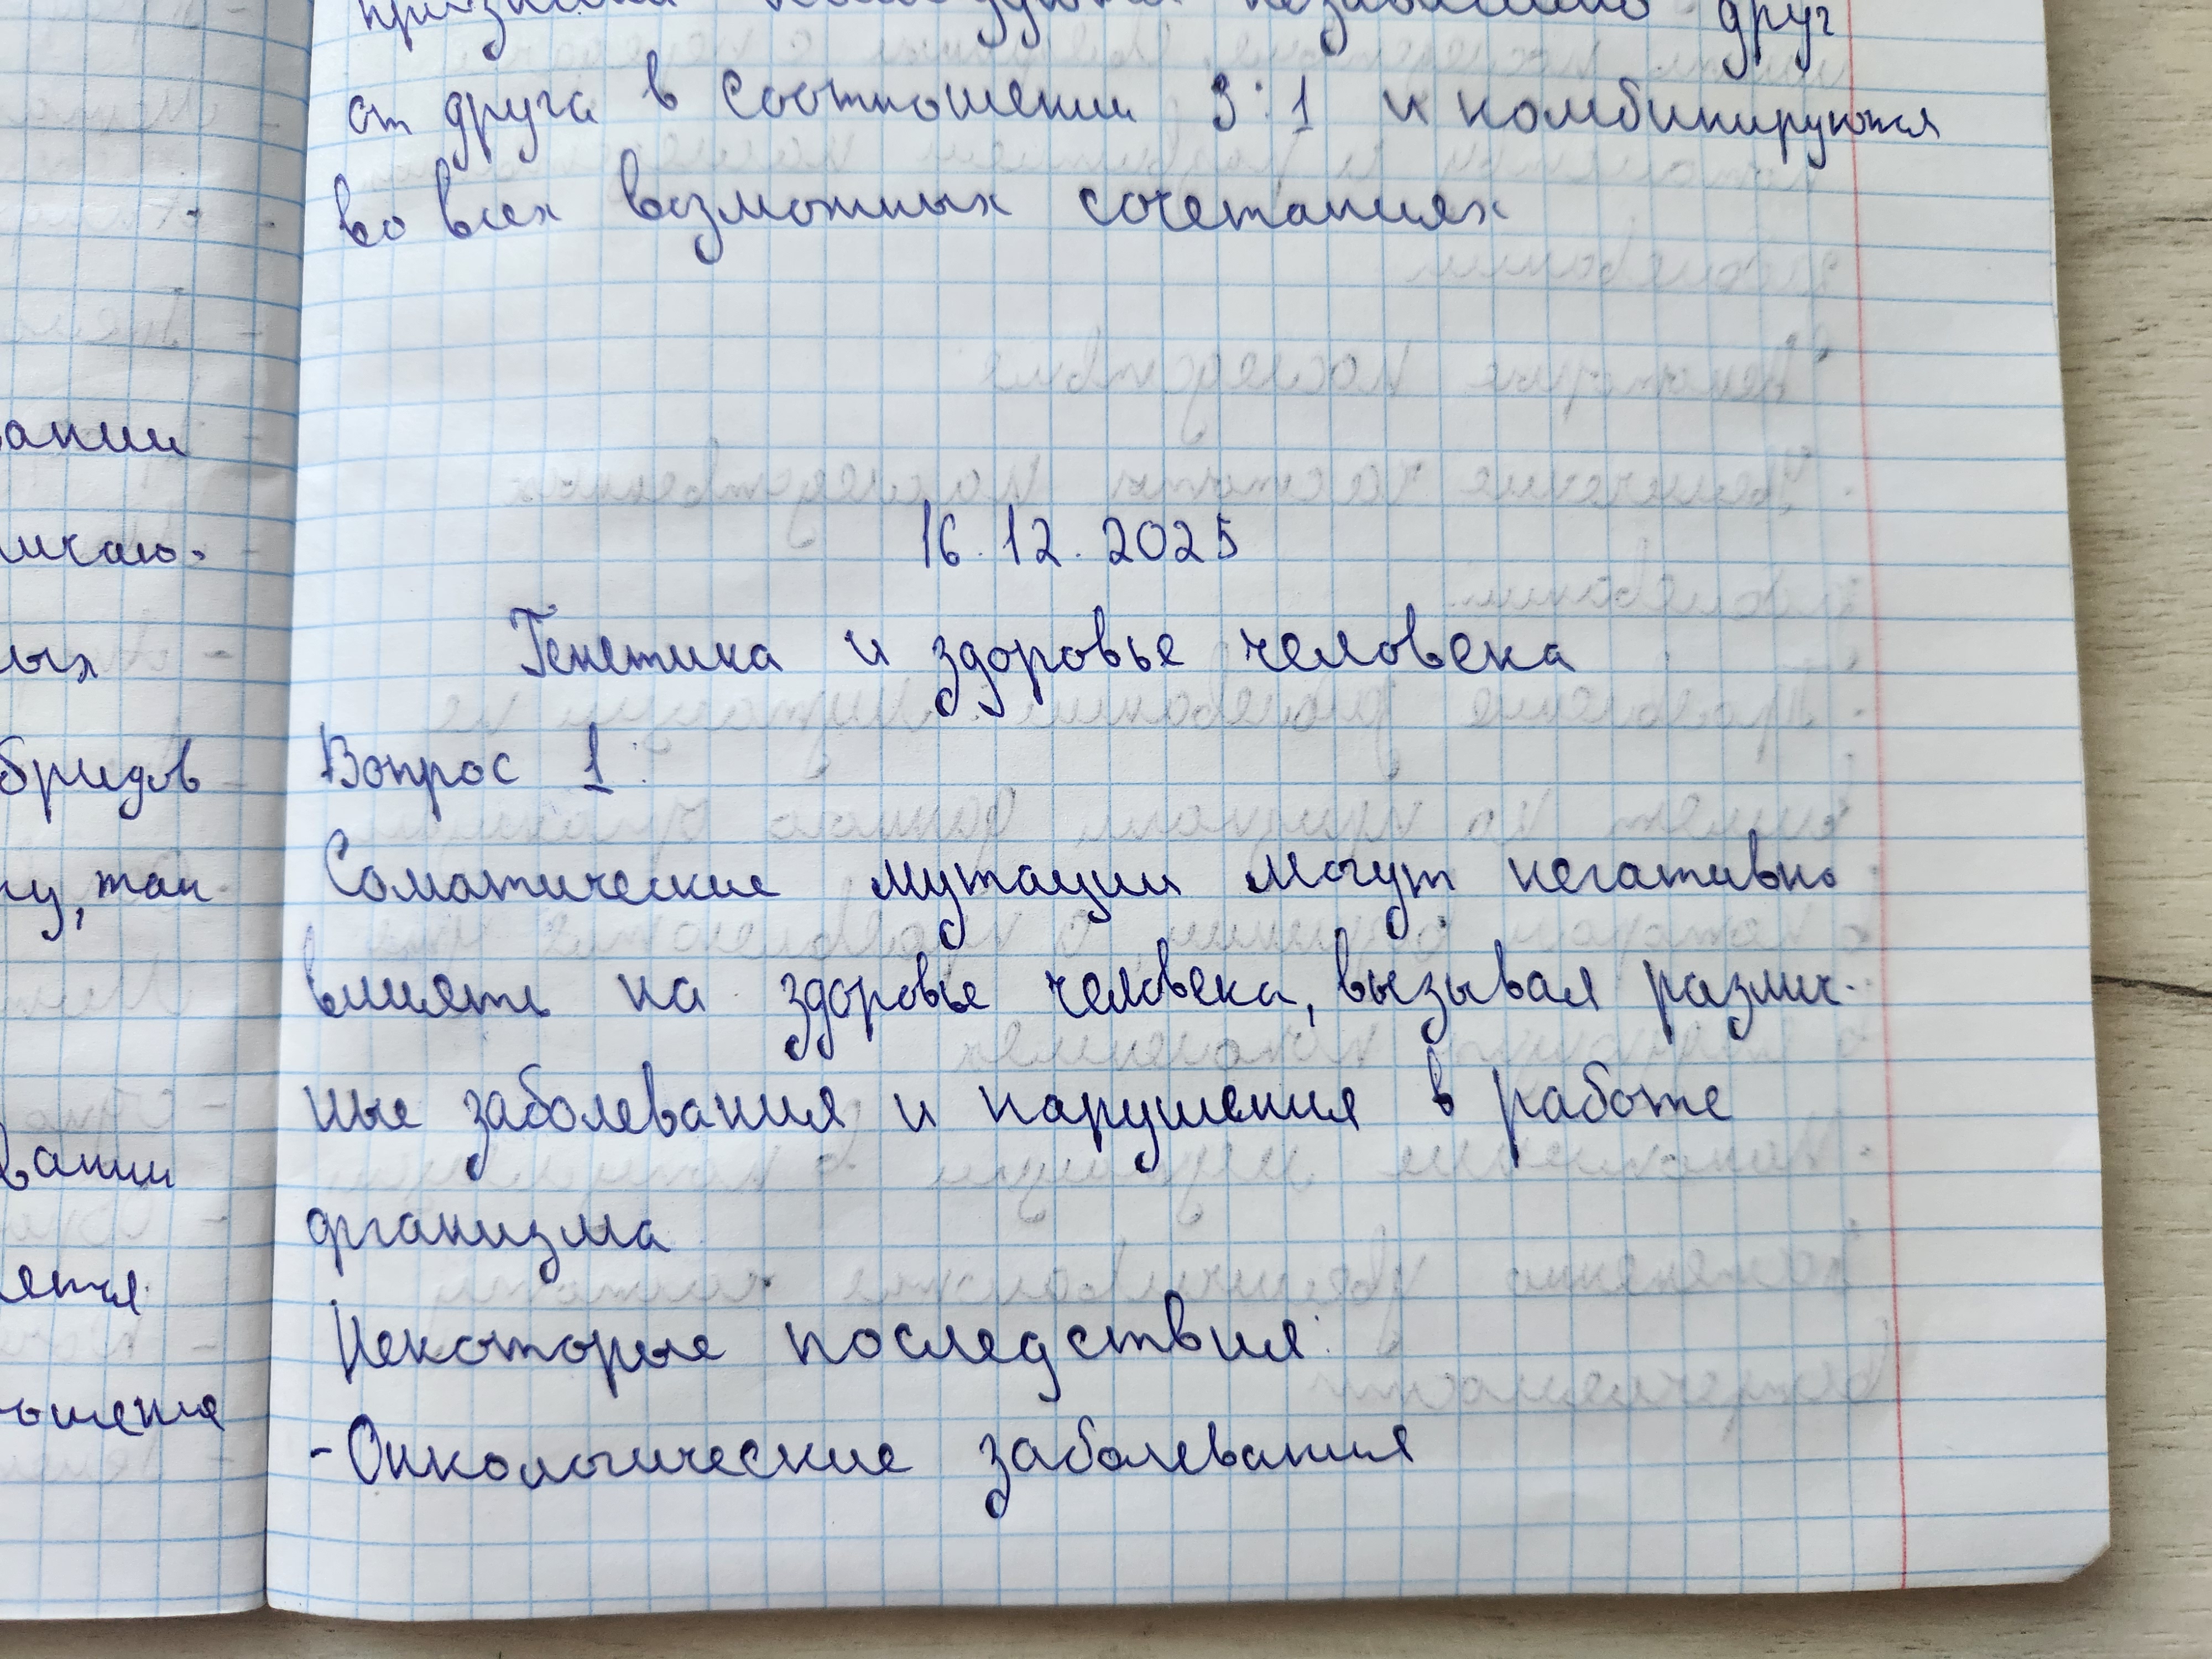 вании
ичаю-
ных
бридов
ну, так
вании
яется
ошения
признаки наследуются независимо друг
от друга в соотношении 3:1 и комбинируются
во всех возможных сочетаниях
16.12.2025
Генетика и здоровье человека
Вопрос 1:
Соматические мутации могут негативно
влиять на здоровье человека, вызывая различ-
ные заболевания и нарушения в работе
организма
Некоторые последствия:
- Онкологические заболевания